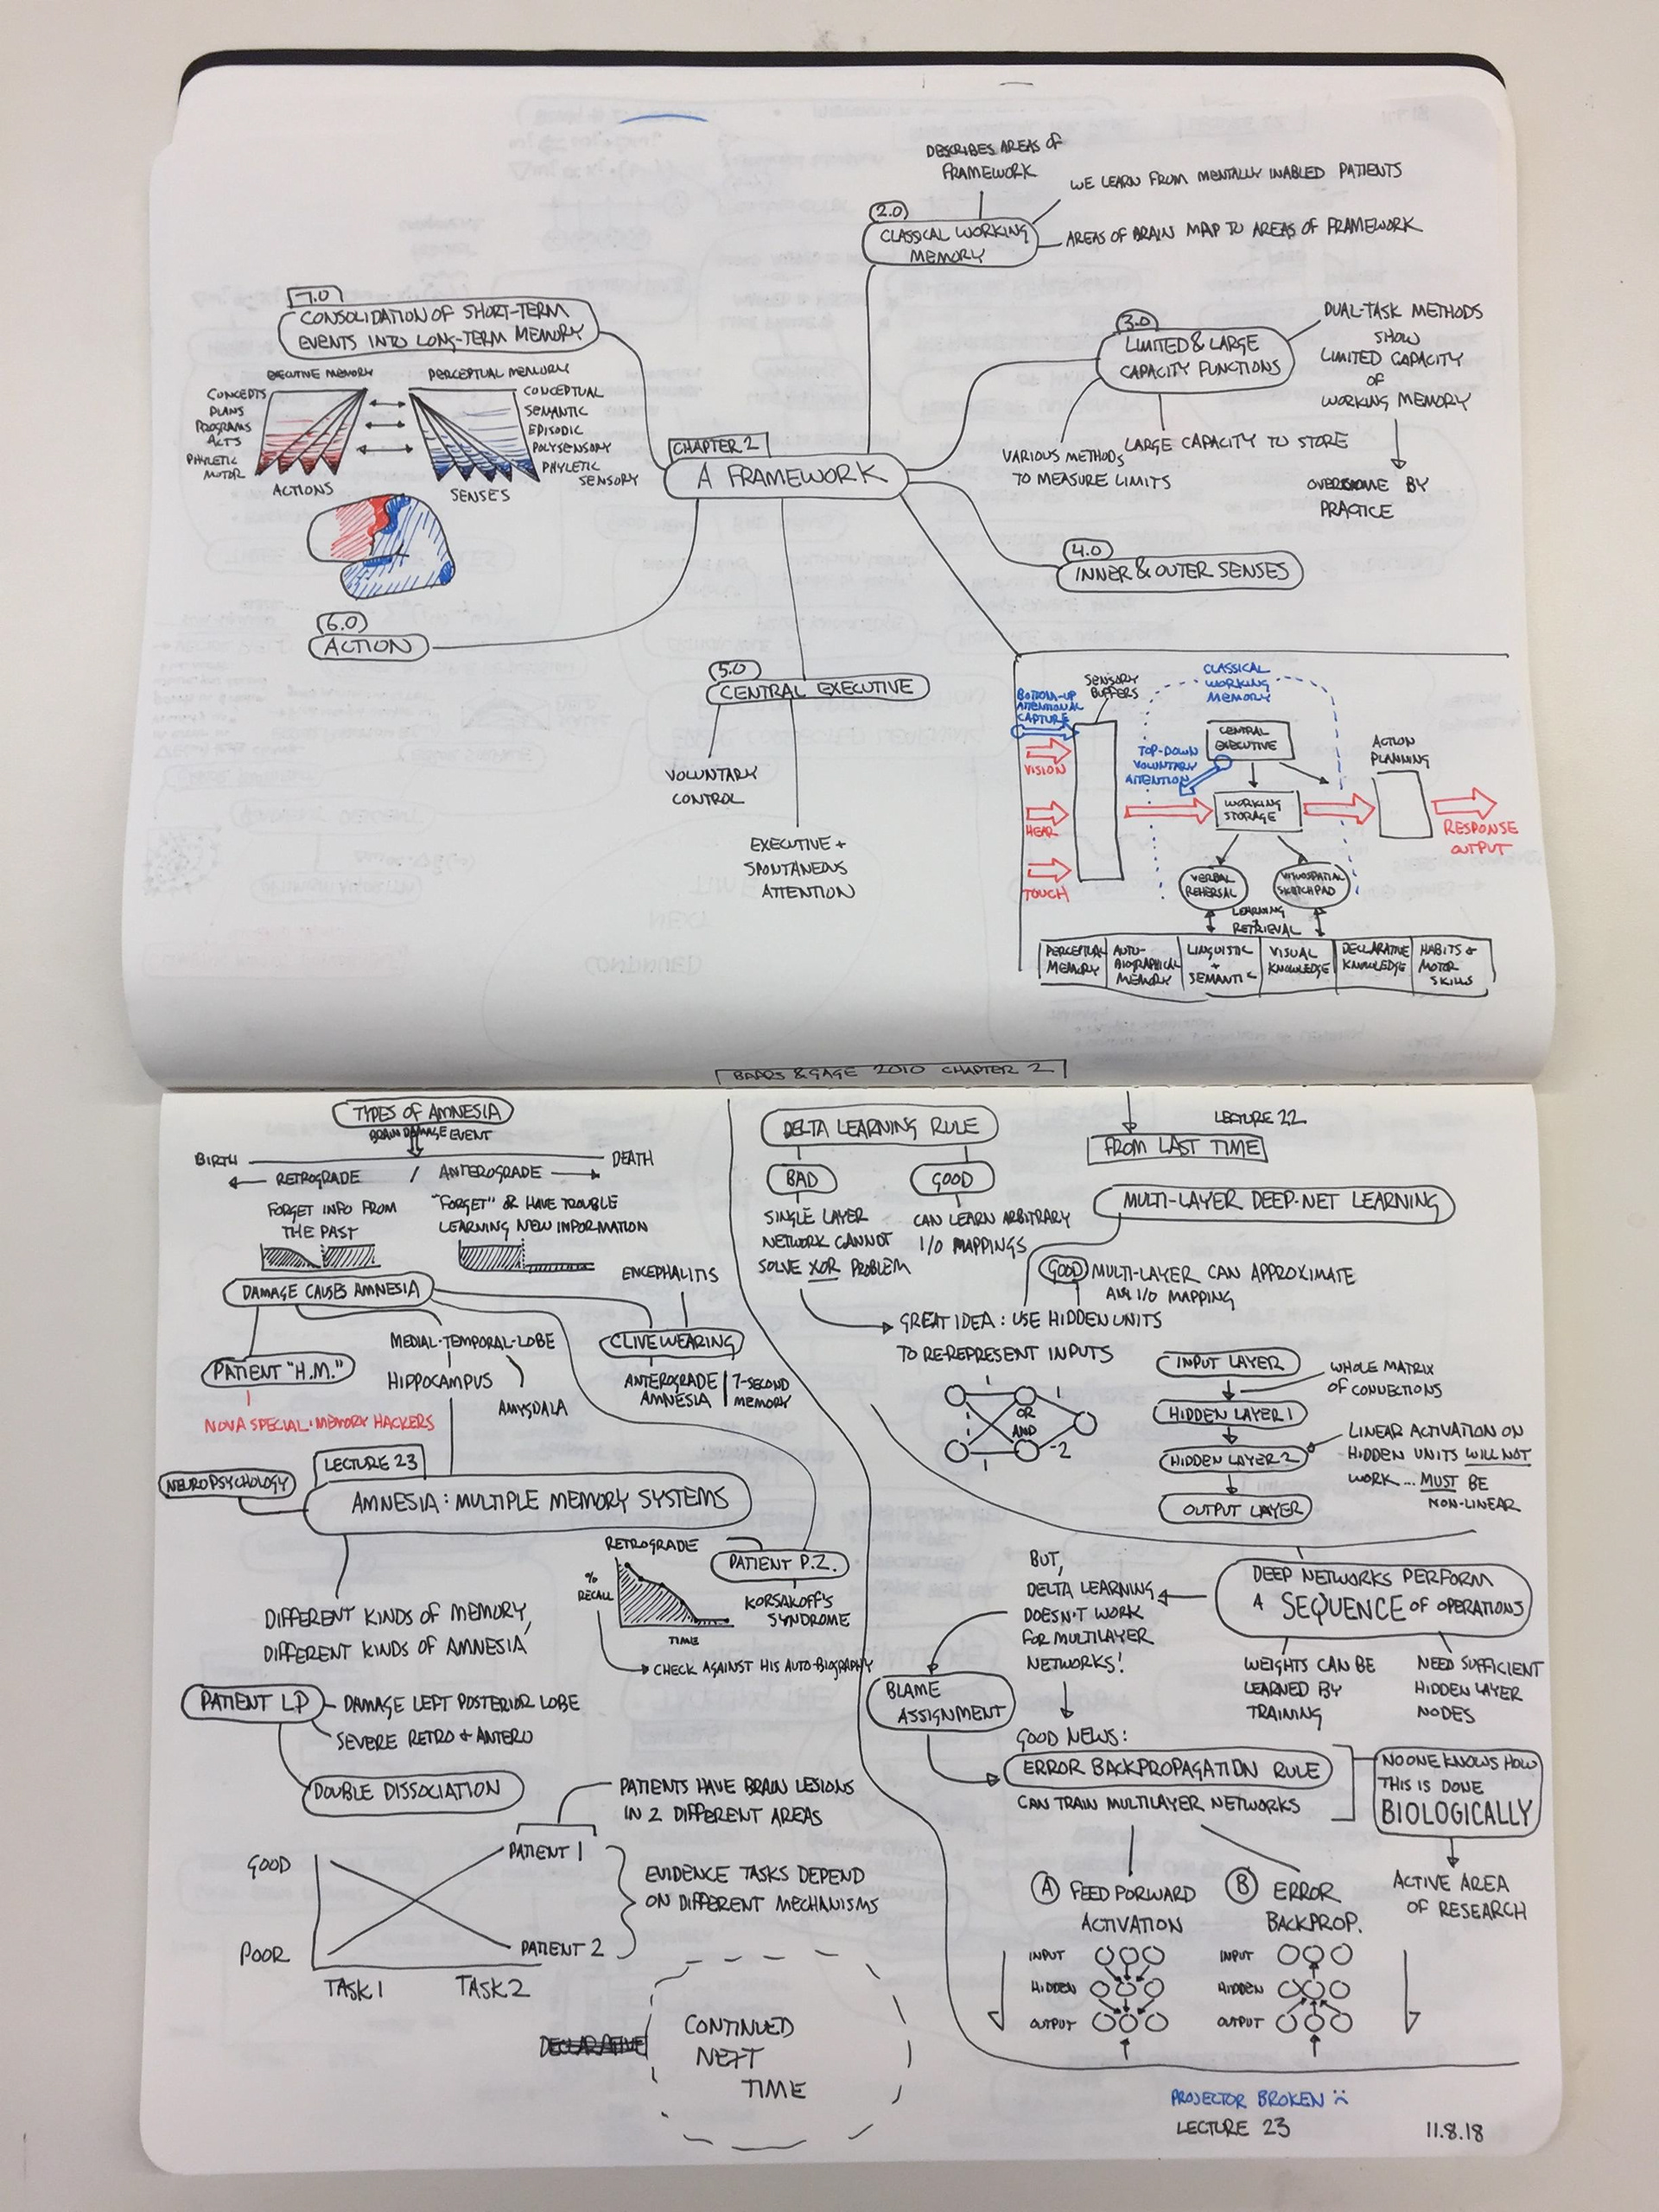 DESCRIBES AREAS OF
FRAMEWORK
WE LEARN FROM MENTALLY INABLED PATIENTS
2.0
CLASSICAL WORKING
MEMORY
AREAS OF BRAIN MAP TO AREAS OF FRAMEWORK
7.0
CONSOLIDATION OF SHORT-TERM
EVENTS INTO LONG-TERM MEMORY
EXECUTIVE MEMORY
PERCEPTUAL MEMORY
CONCEPTS
PLANS
PROGRAMS
ACTS
PHYLETIC
MOTOR
ACTIONS
CONCEPTUAL
SEMANTIC
EPISODIC
POLYSENSORY
PHYLETIC
SENSORY
SENSES
3.0
LIMITED & LARGE
CAPACITY FUNCTIONS
DUAL-TASK METHODS
SHOW
LIMITED CAPACITY
OF
WORKING MEMORY
OVERCOME BY
PRACTICE
VARIOUS METHODS
TO MEASURE LIMITS
LARGE CAPACITY TO STORE
CHAPTER 2
A FRAMEWORK
4.0
INNER & OUTER SENSES
6.0
ACTION
5.0
CENTRAL EXECUTIVE
VOLUNTARY
CONTROL
EXECUTIVE +
SPONTANEOUS
ATTENTION
BOTTOM-UP
ATTENTIONAL
CAPTURE
SENSORY
BUFFERS
CLASSICAL
WORKING
MEMORY
VISION
HEAR
TOUCH
TOP-DOWN
VOLUNTARY
ATTENTION
CENTRAL
EXECUTIVE
WORKING
STORAGE
ACTION
PLANNING
RESPONSE
OUTPUT
VERBAL
REHERSAL
VISUOSPATIAL
SKETCHPAD
LEARNING
RETRIEVAL
PERCEPTUAL
MEMORY
AUTO-
BIOGRAPHICAL
MEMORY
LINGUISTIC
+
SEMANTIC
VISUAL
KNOWLEDGE
DECLARATIVE
KNOWLEDGE
HABITS &
MOTOR
SKILLS
BAARS & GAGE 2010 CHAPTER 2
TYPES OF AMNESIA
BRAIN DAMAGE EVENT
BIRTH
DEATH
RETROGRADE / ANTEROGRADE
FORGET INFO FROM
THE PAST
"FORGET" & HAVE TROUBLE
LEARNING NEW INFORMATION
DAMAGE CAUSES AMNESIA
ENCEPHALITIS
MEDIAL-TEMPORAL-LOBE
CLIVE WEARING
PATIENT "H.M."
HIPPOCAMPUS
AMYGDALA
ANTEROGRADE
AMNESIA
7-SECOND
MEMORY
NOVA SPECIAL: MEMORY HACKERS
NEUROPSYCHOLOGY
LECTURE 23
AMNESIA: MULTIPLE MEMORY SYSTEMS
RETROGRADE
PATIENT P.Z.
%
RECALL
TIME
KORSAKOFF'S
SYNDROME
CHECK AGAINST HIS AUTO-BIOGRAPHY
DIFFERENT KINDS OF MEMORY,
DIFFERENT KINDS OF AMNESIA
PATIENT L.P
DAMAGE LEFT POSTERIOR LOBE
SEVERE RETRO & ANTERO
DOUBLE DISSOCIATION
PATIENTS HAVE BRAIN LESIONS
IN 2 DIFFERENT AREAS
GOOD
POOR
PATIENT 1
PATIENT 2
TASK 1
TASK 2
EVIDENCE TASKS DEPEND
ON DIFFERENT MECHANISMS
DECLARATIVE
CONTINUED
NEXT
TIME
DELTA LEARNING RULE
LECTURE 22
FROM LAST TIME
BAD
GOOD
SINGLE LAYER
NETWORK CANNOT
SOLVE XOR PROBLEM
CAN LEARN ARBITRARY
I/O MAPPINGS
MULTI-LAYER DEEP-NET LEARNING
GOOD
MULTI-LAYER CAN APPROXIMATE
ANY I/O MAPPING
GREAT IDEA: USE HIDDEN UNITS
TO RE-REPRESENT INPUTS
1
1
OR
AND
1
-2
INPUT LAYER
WHOLE MATRIX
OF CONNECTIONS
HIDDEN LAYER 1
HIDDEN LAYER 2
OUTPUT LAYER
LINEAR ACTIVATION ON
HIDDEN UNITS WILL NOT
WORK... MUST BE
NON-LINEAR
BUT,
DELTA LEARNING
DOESN'T WORK
FOR MULTILAYER
NETWORKS!
DEEP NETWORKS PERFORM
A SEQUENCE OF OPERATIONS
WEIGHTS CAN BE
LEARNED BY
TRAINING
NEED SUFFICIENT
HIDDEN LAYER
NODES
BLAME
ASSIGNMENT
GOOD NEWS:
ERROR BACKPROPAGATION RULE
CAN TRAIN MULTILAYER NETWORKS
NO ONE KNOWS HOW
THIS IS DONE
BIOLOGICALLY
ACTIVE AREA
OF RESEARCH
A FEED FORWARD
ACTIVATION
B ERROR
BACKPROP.
INPUT
HIDDEN
OUTPUT
INPUT
HIDDEN
OUTPUT
PROJECTOR BROKEN :(
LECTURE 23
11.8.18